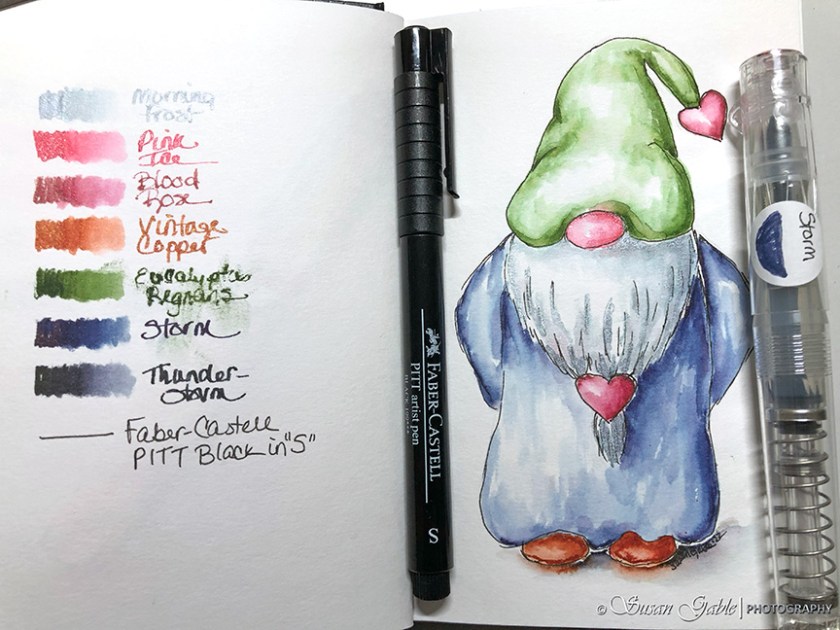 Morning
Frost
Pink
Ice
Blood
Rose
Vintage
Copper
Eucalyptus
Regnans
Storm
Thunder-
storm
Faber-Castell
PITT Black in "S"
FABER-CASTELL
PITT artist pen
S
Storm
© Susan Gable | PHOTOGRAPHY